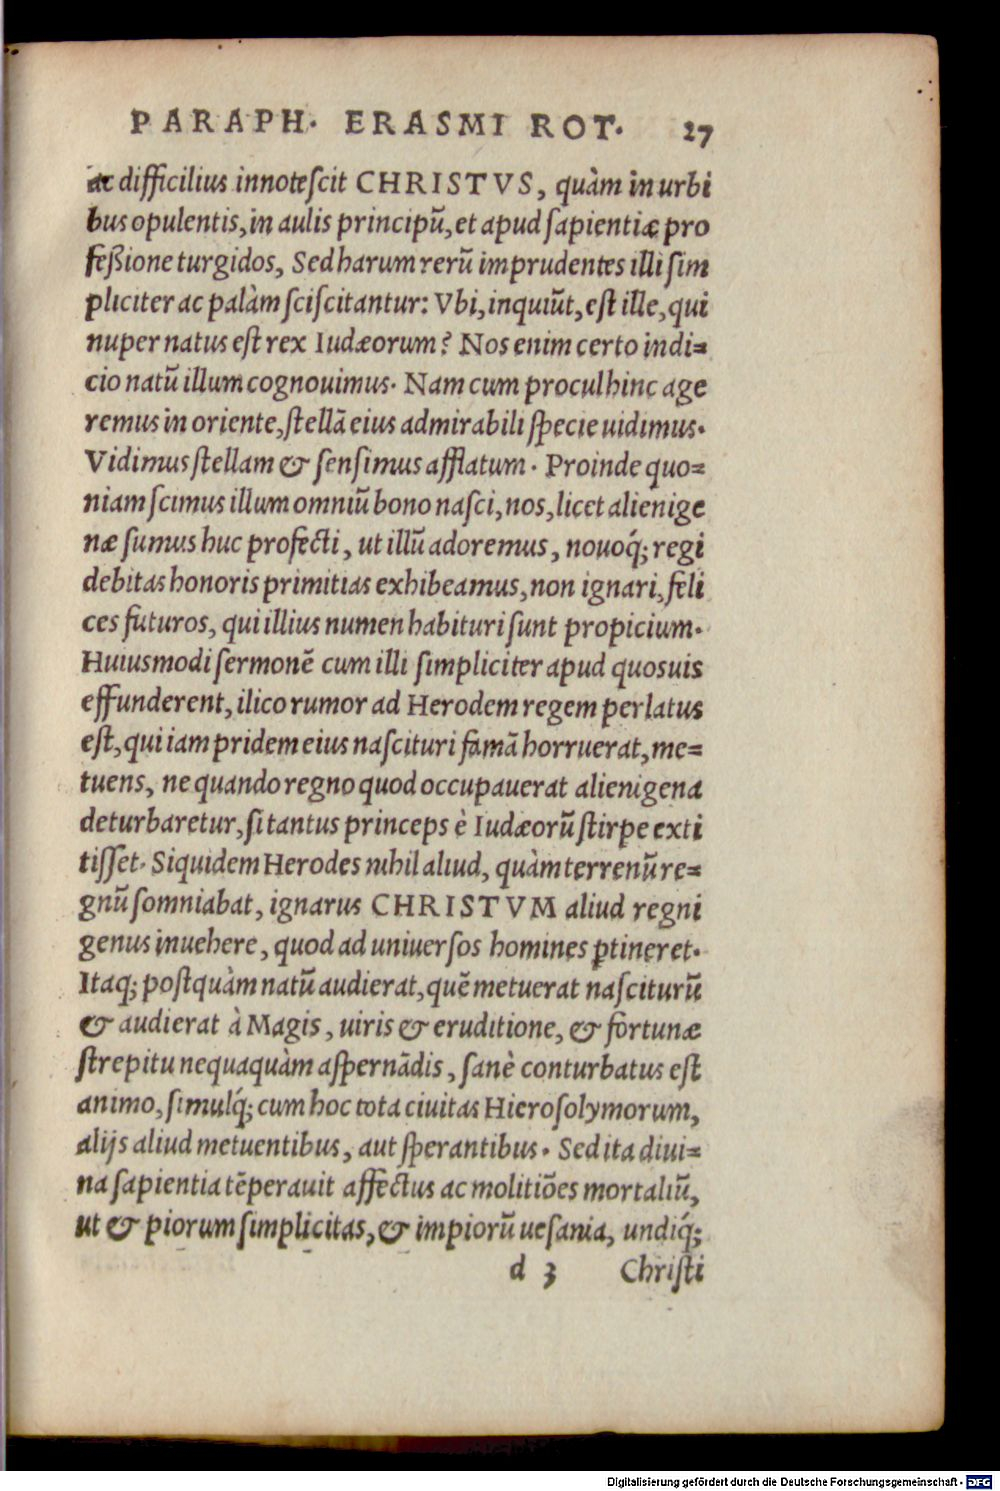 PARAPH. ERASMI ROT. 27
ac difficilius innoteſcit CHRISTVS, quàm in urbi
bus opulentis, in aulis principũ, et apud ſapientiæ pro
feßione turgidos, Sed harum rerũ imprudentes illi ſim
pliciter ac palàm ſciſcitantur: Vbi, inquiũt, eſt ille, qui
nuper natus eſt rex Iudæorum? Nos enim certo indi=
cio natũ illum cognouimus. Nam cum procul hinc age
remus in oriente, ſtellã eius admirabili ſpecie uidimus.
Vidimus ſtellam & ſenſimus afflatum. Proinde quo=
niam ſcimus illum omniũ bono naſci, nos, licet alienige
næ ſumus huc profecti, ut illũ adoremus, nouoq́; regi
debitas honoris primitias exhibeamus, non ignari, feli
ces futuros, qui illius numen habituri ſunt propicium.
Huiusmodi ſermonẽ cum illi ſimpliciter apud quosuis
effunderent, ilico rumor ad Herodem regem perlatus
eſt, qui iam pridem eius naſcituri famã horruerat, me=
tuens, ne quando regno quod occupauerat alienigena
deturbaretur, ſi tantus princeps è Iudæorũ ſtirpe exti
tiſſet. Siquidem Herodes nihil aliud, quàm terrenũ re=
gnũ ſomniabat, ignarus CHRISTVM aliud regni
genus inuehere, quod ad uniuerſos homines ꝑtineret.
Itaq; poſtquàm natũ audierat, quẽ metuerat naſciturũ
& audierat à Magis, uiris & eruditione, & fortunæ
ſtrepitu nequaquàm aſpernãdis, ſanè conturbatus eſt
animo, ſimulq́; cum hoc tota ciuitas Hieroſolymorum,
alijs aliud metuentibus, aut ſperantibus. Sed ita diui=
na ſapientia tẽperauit affectus ac molitiões mortaliũ,
ut & piorum ſimplicitas, & impiorũ ueſania, undiq́;
d 3 Chriſti
Digitalisierung gefördert durch die Deutsche Forschungsgemeinschaft - DFG